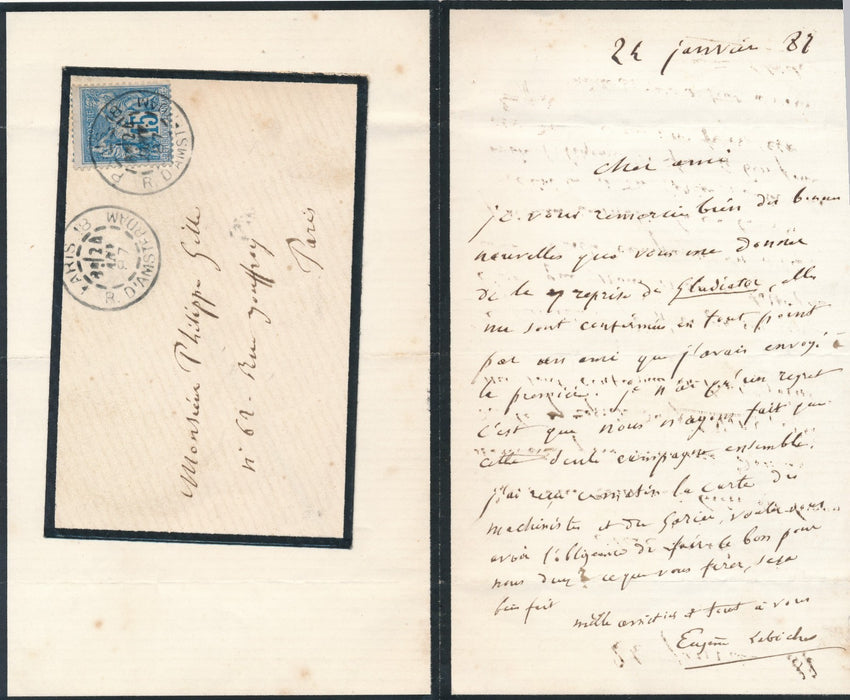 15
PARIS 18
R. D'AMSTERDAM
PARIS 18
24
87
R. D'AMSTERDAM
Monsieur Philippe Gille
n° 62. Rue Jouffroy
Paris
24 janvier 87
Cher ami
je vous remercie bien des bonnes
nouvelles que vous me donnez
de la reprise de Gladiator, elles
me sont confirmées en tout point
par un ami que j'avais envoyé à
la première. je n'ai qu'un regret
c'est que nous n'ayons fait que
cette seule campagne ensemble.
j'ai reçu ce matin la carte des
machinistes et du voulez vous
avoir l'obligeance de faire le bon pour
nous deux? ce que vous ferez, sera
bien fait
mille amitiés et tout à vous
Eugène Labiche